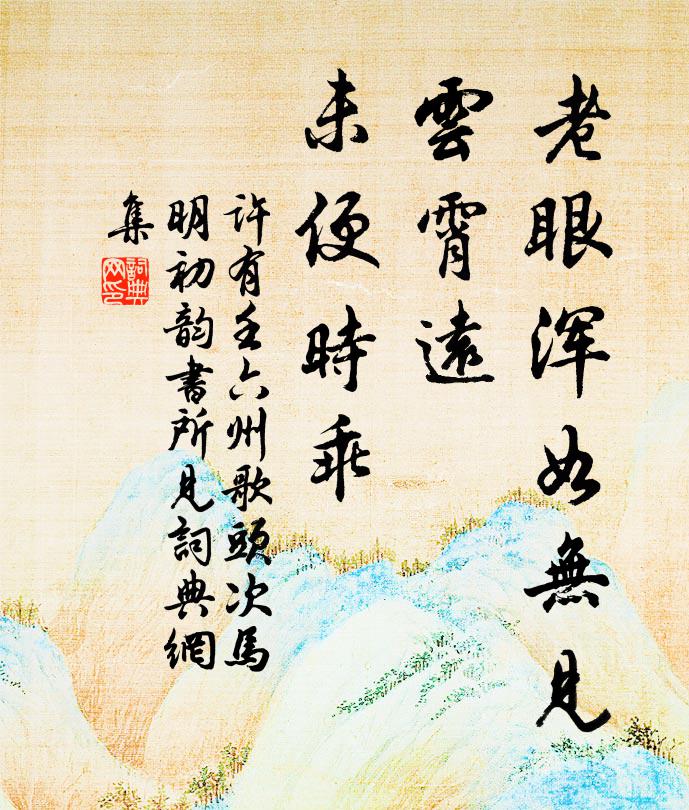 老眼浑如無見
雲霄遠
未便時乖
許有壬六州歌頭次馬
明初韵書所見詞典網
集
詞典網印